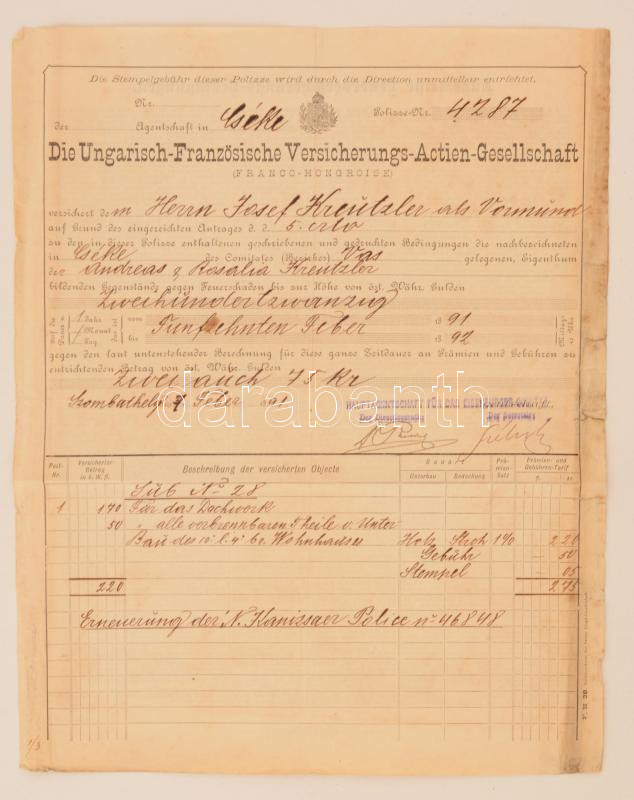 Die Stempelgebühr dieser Polizze wird durch die Direction unmittelbar entrichtet.
Nr. Polisse-Nr. 4287
der Agentschaft in Cséke
Die Ungarisch-Französische Versicherungs-Actien-Gesellschaft
(FRANCO-HONGROISE)
versichert dem Herrn Josef Kreutzler als Vormund
auf Grund des eingereichten Antrages d. d. 5. crto
zu den in dieser Polisse enthaltenen geschriebenen und gedruckten Bedingungen die nachbezeichneten
in Cséke des Comitates (Bezirkes) Vas gelegenen, Eigenthum
der Andreas & Rosalia Kreutzler
bildenden Gegenstände gegen Feuerschaden bis zur Höhe von öst. Währ. Gulden
Zweihundertzwanzig
1 Jahr vom Funfzehnten Feber 1891
Monat
Tag bis 1892
gegen den laut untenstehender Berechnung für diese ganze Zeitdauer an Prämien und Gebühren zu
entrichtenden Betrag von öst. Währ. Gulden
Zwei auch 75 Kr
Szombathely Feber 891
HAUPTAGENTSCHAFT FÜR DAS EISENBURGER
darabanth
Post-Nr. Versicherter Betrag in ö. W. fl. Beschreibung der versicherten Objecte Bauart Prämien-Satz Prämien- und Gebühren-Tarif
Unterbau Bedachung f.
Sub No 28
1 170 Für das Dachwerk
50 " alle verbrennbaren Theile v. Unter
Bau des 10° l. 4° br. Wohnhauses Holz Stroh 1 2 20
Gebühr 50
Stempel 05
220 2 75
Erneuerung der N. Kanizsaer Police no 46848